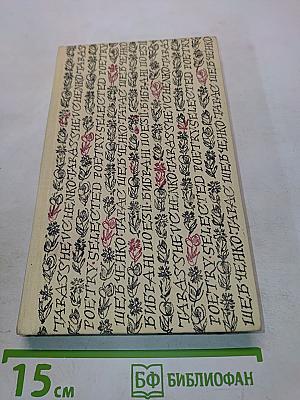 TARAS SHEVCHENKO·TARAS
POETRY·SELECTED POETRY
ШЕВЧЕНКО·ТАРАС ШЕВЧЕНКО·ТАРАС
ВИБРАНІ ПОЕЗІЇ·ВИБРАНІ ПОЕЗІЇ
TARAS SHEVCHENKO·TARAS
POETRY·SELECTED POETRY
ШЕВЧЕНКО·ТАРАС
15 см
БФ БИБЛИОФАН